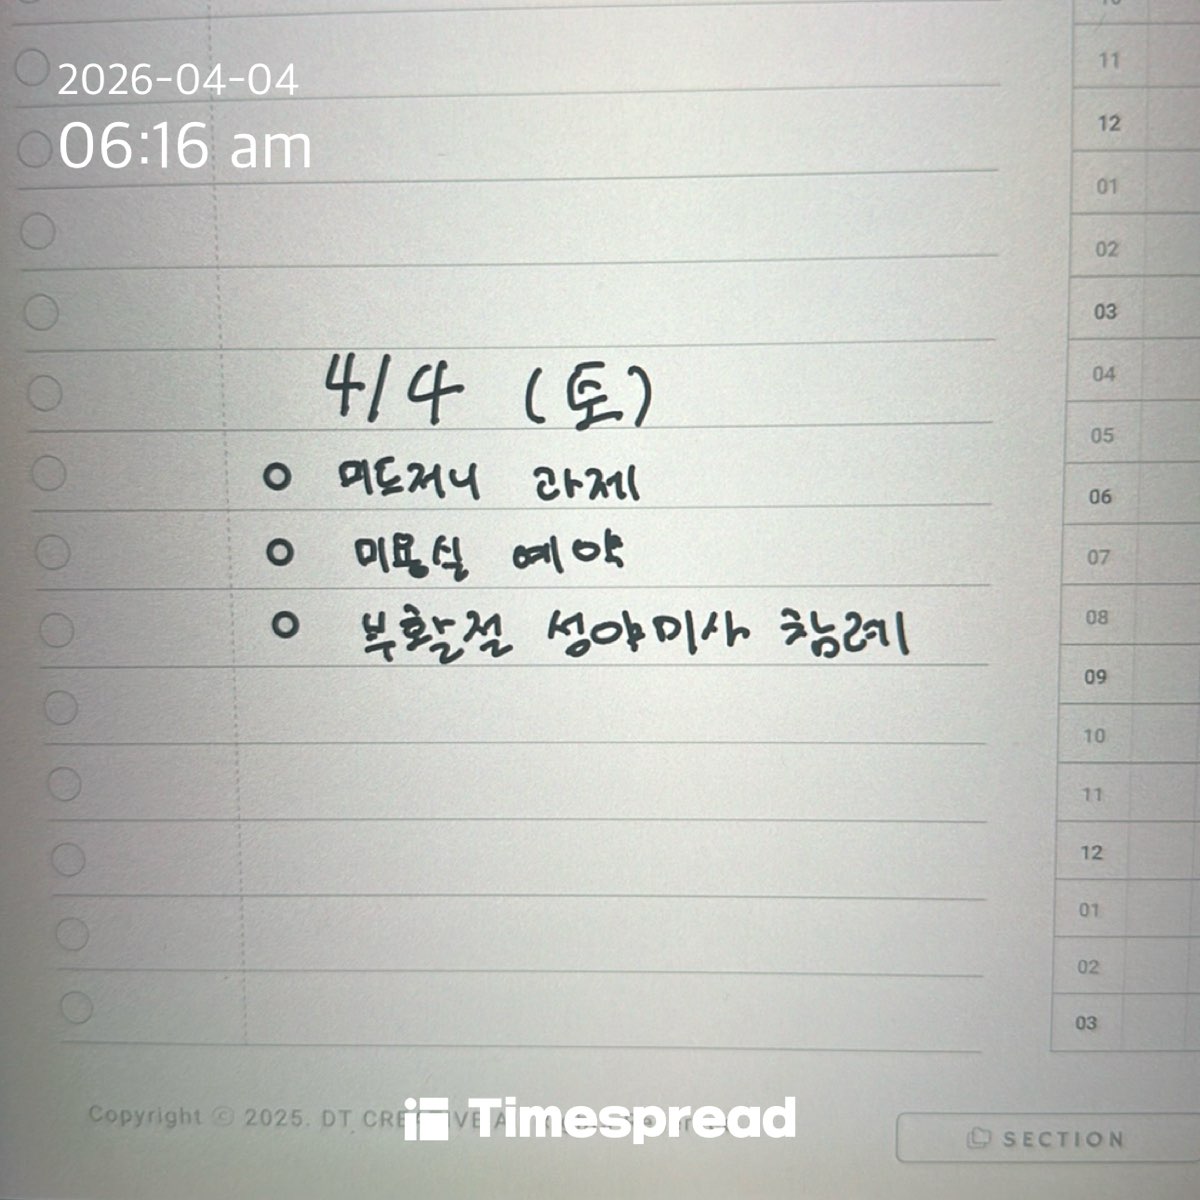 10
11
2026-04-04
12
06:16 am
01
02
03
4/4 (토)
04
05
미도저니 과제
06
미용실 예약
07
부활절 성야미사 참례
08
09
10
11
12
01
02
03
Copyright ⓒ 2025. DT CRE
Timespread
SECTION